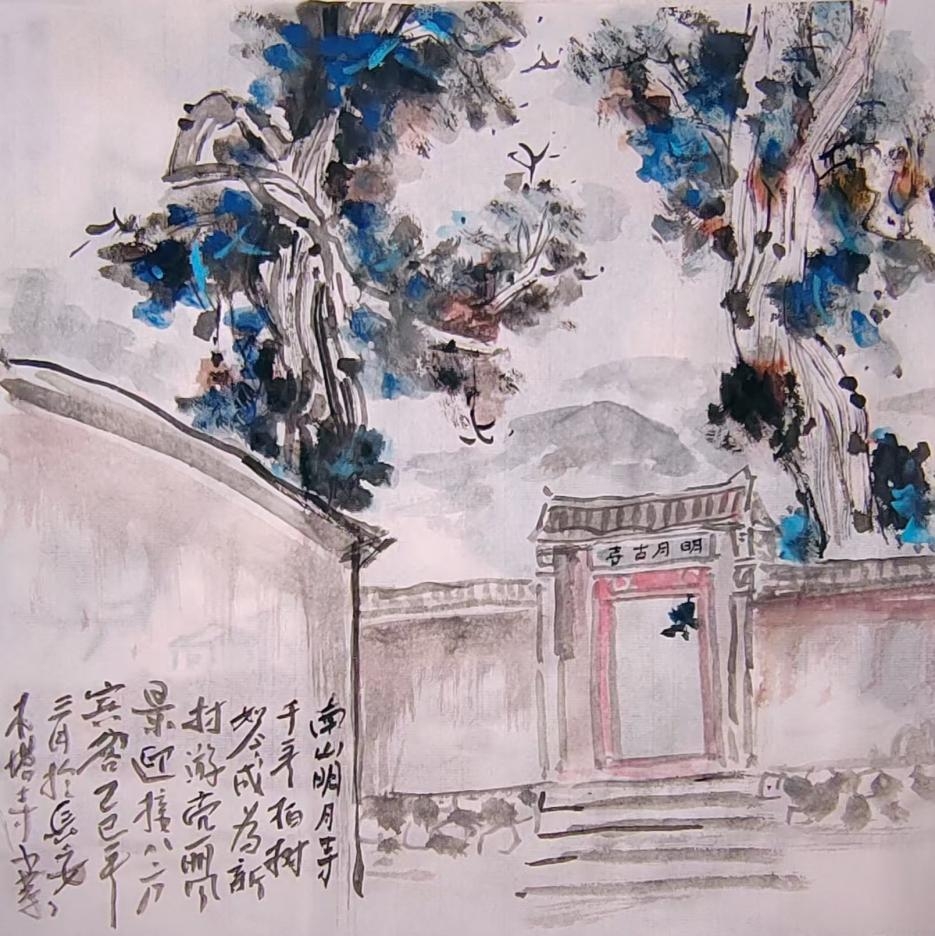 明月古寺
南山明月寺
千年柏树
如今成为新
村游亮丽风
景迎接八方
宾客乙巳年
三月於長安
木塔寺